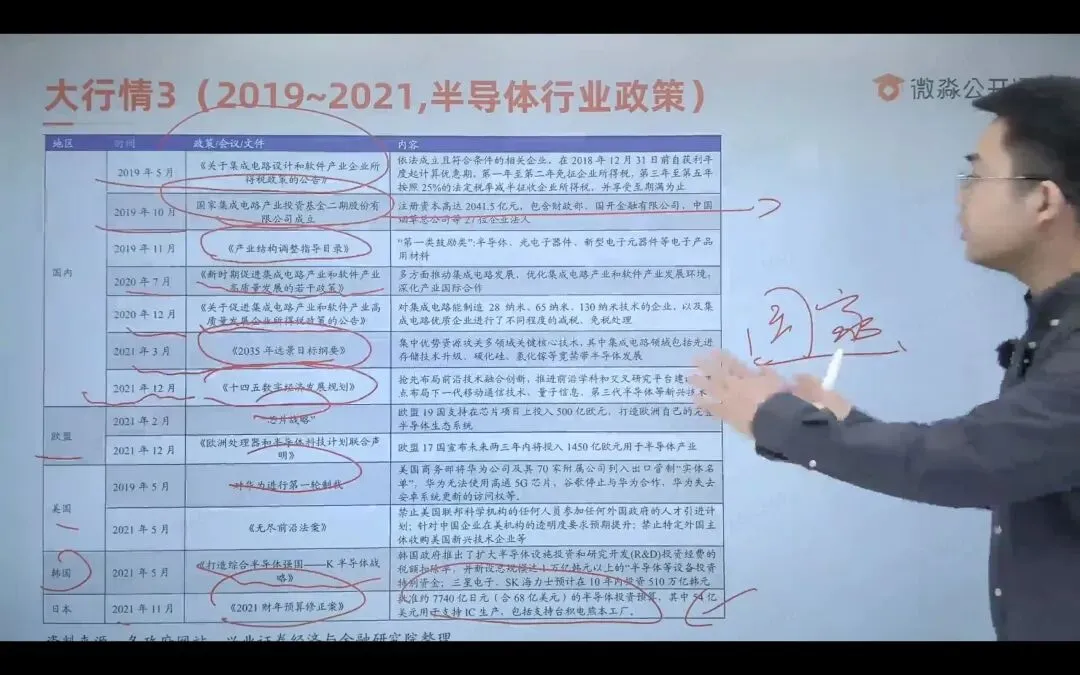 大行情3（2019~2021,半导体行业政策）
微淼公开
地区 时间 政策/会议/文件 内容
国内
2019 年 5 月
《关于集成电路设计和软件产业企业所
得税政策的公告》
依法成立且符合条件的相关企业，在 2018 年 12 月 31 日前自获利年
度起计算优惠期，第一年至第二年免征企业所得税，第三年至第五年
按照 25%的法定税率减半征收企业所得税，并享受至期满为止
2019 年 10 月
国家集成电路产业投资基金二期股份有
限公司成立
注册资本高达 2041.5 亿元，包含财政部、国开金融有限公司、中国
烟草总公司等 27 位企业法人
2019 年 11 月
《产业结构调整指导目录》
"第一类鼓励类":半导体、光电子器件、新型电子元器件等电子产品
用材料
2020 年 7 月
《新时期促进集成电路产业和软件产业
高质量发展的若干政策》
多方面推动集成电路发展，优化集成电路产业和软件产业发展环境，
深化产业国际合作
2020 年 12 月
《关于促进集成电路产业和软件产业高
质量发展企业所得税政策的公告》
对集成电路能制造 28 纳米、65 纳米、130 纳米技术的企业，以及集
成电路优质企业进行了不同程度的减税、免税处理
2021 年 3 月
《2035 年远景目标纲要》
集中优势资源攻关多领域关键核心技术，其中集成电路领域包括先进
存储技术升级、碳化硅、氮化镓等宽禁带半导体发展
2021 年 12 月
《十四五数字经济发展规划》
抢先布局前沿技术融合创新，推进前沿学科和交叉研究平台建
点布局下一代移动通信技术、量子信息、第三代半导体等新兴技术
欧盟
2021 年 2 月
芯片战略"
欧盟 19 国支持在芯片项目上投入 500 亿欧元，打造欧洲自己的完
半导体生态系统
2021 年 12 月
《欧洲处理器和半导体科技计划联合声
明》
欧盟 17 国宣布未来两三年内将投入 1450 亿欧元用于半导体产业
美国
2019 年 5 月
对华为进行第一轮制裁
美国商务部将华为公司及其 70 家附属公司列入出口管制"实体名
单"，华为无法使用高通 5G 芯片，谷歌停止与华为合作，华为失去
安卓系统更新的访问权等。
2021 年 5 月
《无尽前沿法案》
禁止美国联邦科学机构的任何人员参加任何外国政府的人才引进计
划；针对中国企业在美机构的透明度要求预期提升；禁止特定外国主
体收购美国新兴技术企业等
韩国
2021 年 5 月
《打造综合半导体强国——K 半导体战
略》
韩国政府推出了扩大半导体设施投资和研究开发(R&D)投资经费的
税额扣除率，并新设总规模达 1 万亿韩元以上的"半导体等设备投资
特别资金；三星电子、SK 海力士预计在 10 年内投资 510 万亿韩元
日本
2021 年 11 月
《2021 财年预算修正案》
批准约 7740 亿日元（合 68 亿美元）的半导体投资预算，其中 54 亿
美元用于支持 IC 生产，包括支持台积电熊本工厂。
资料来源：各政府网站，兴业证券经济与金融研究院整理